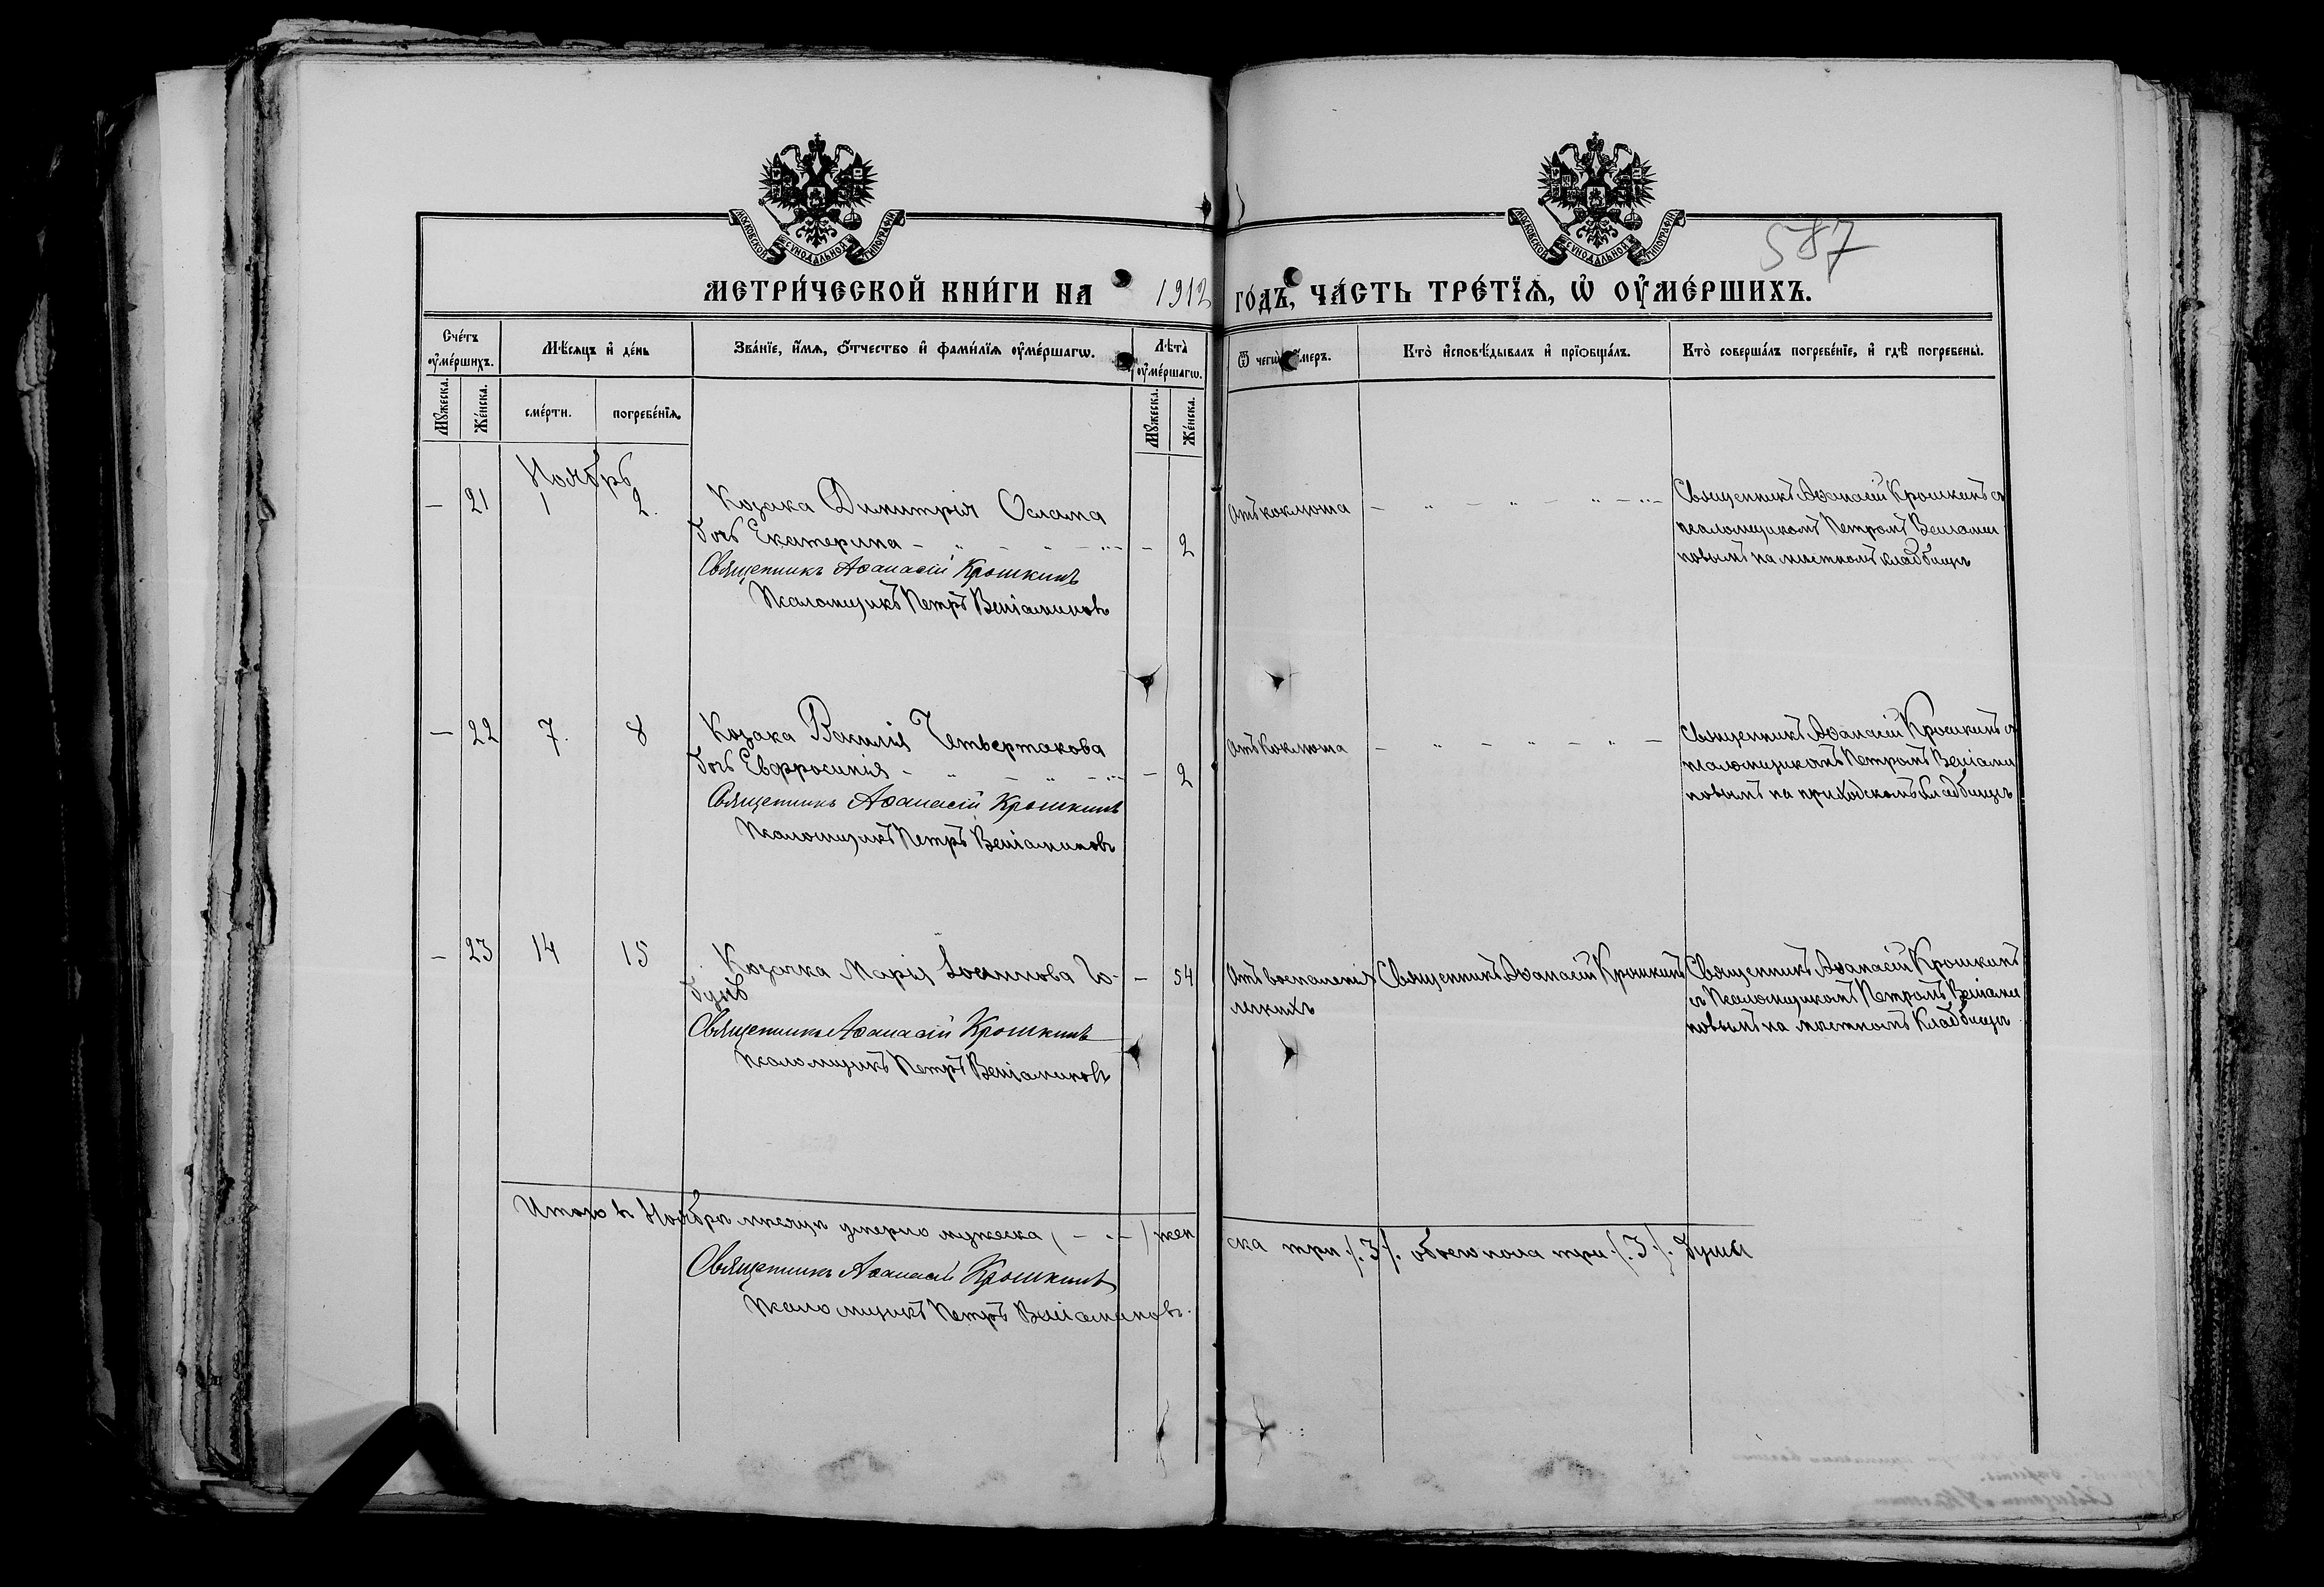 587
МОСКОВСКОЙ СѴНОДАЛЬНОЙ ТИПОГРАФІИ
МОСКОВСКОЙ СѴНОДАЛЬНОЙ ТИПОГРАФІИ
МЕТРИ́ЧЕСКОЙ КНИ́ГИ НА 1912 ГО́ДЪ, ЧА́СТЬ ТРЕ́ТЇѦ, Ѡ ОУМЕ́РШИХЪ.
Сче́тъ оуме́ршихъ.
Мꙋ́жеска.
Же́нска.
Мѣ́сяцъ и де́нь
сме́рти.
погребе́нїѧ.
Зва́нїе, и́мѧ, о́тчество и фами́лїѧ оуме́ршагѡ.
Лѣта̀ оуме́ршагѡ.
Мꙋ́жеска.
Же́нска.
Ѿ чегѡ̀ оу́меръ.
Кто̀ и҆сповѣ́дывалъ и҆ прїѡбща́лъ.
Кто̀ соверша́лъ погребе́нїе, и҆ гдѣ̀ погребены̀.
Ноябрь
— 21 1 2.
Козака Димитрія Ослама
дочь Екатерина — „ — „ — — 2
Священникъ Аѳанасій Крошкинъ
Псаломщикъ Петръ Веніаминовъ
Отъ коклюша — „ — „ —
Священникъ Аѳанасій Крошкинъ съ
псаломщикомъ Петромъ Веніами
новымъ на мѣстномъ кладбищѣ
— 22 7. 8
Козака Василія Четвертакова
дочь Евфросинія — „ — „ — — 2
Священникъ Аѳанасій Крошкинъ
Псаломщикъ Петръ Веніаминовъ
Отъ коклюша — „ — „ — „ —
Священникъ Аѳанасій Крошкинъ съ
псаломщикомъ Петромъ Веніами
новымъ на приходскомъ кладбищѣ
— 23 14 15
Козачка Марія Іоаннова Го-
дунъ — 54
Священникъ Аѳанасій Крошкинъ
Псаломщикъ Петръ Веніаминовъ
Отъ воспаленія
легкихъ
Священникъ Аѳанасій Крошкинъ
Священникъ Аѳанасій Крошкинъ
съ Псаломщикомъ Петромъ Веніами
новымъ на мѣстномъ кладбищѣ
Итого въ Ноябрѣ мѣсяцѣ умерло мужеска ( — . — ) жен
ска три ./.3./. обоего пола три ./.3./. души
Священникъ Аѳанасій Крошкинъ
Псаломщикъ Петръ Веніаминовъ.